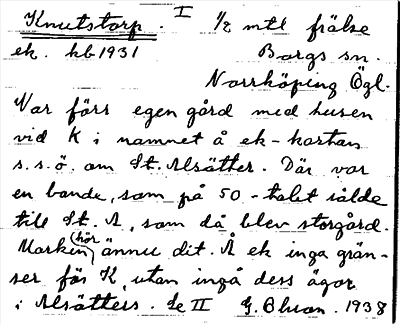 Knutstorp. I 1/2 mtl frälse
ek. kb 1931 Borgs sn.
Norrköping Ögl.
Var förr egen gård med husen
vid K i namnet å ek-kartan
s.s.ö. om St. Alsätter. Där var
en bonde, som på 50-talet sålde
till St. A, som då blev storgård.
Marken hör ännu dit. Å ek inga grän-
ser för K, utan ingå dess ägor
i Alsätters. Se II G. Olson. 1938